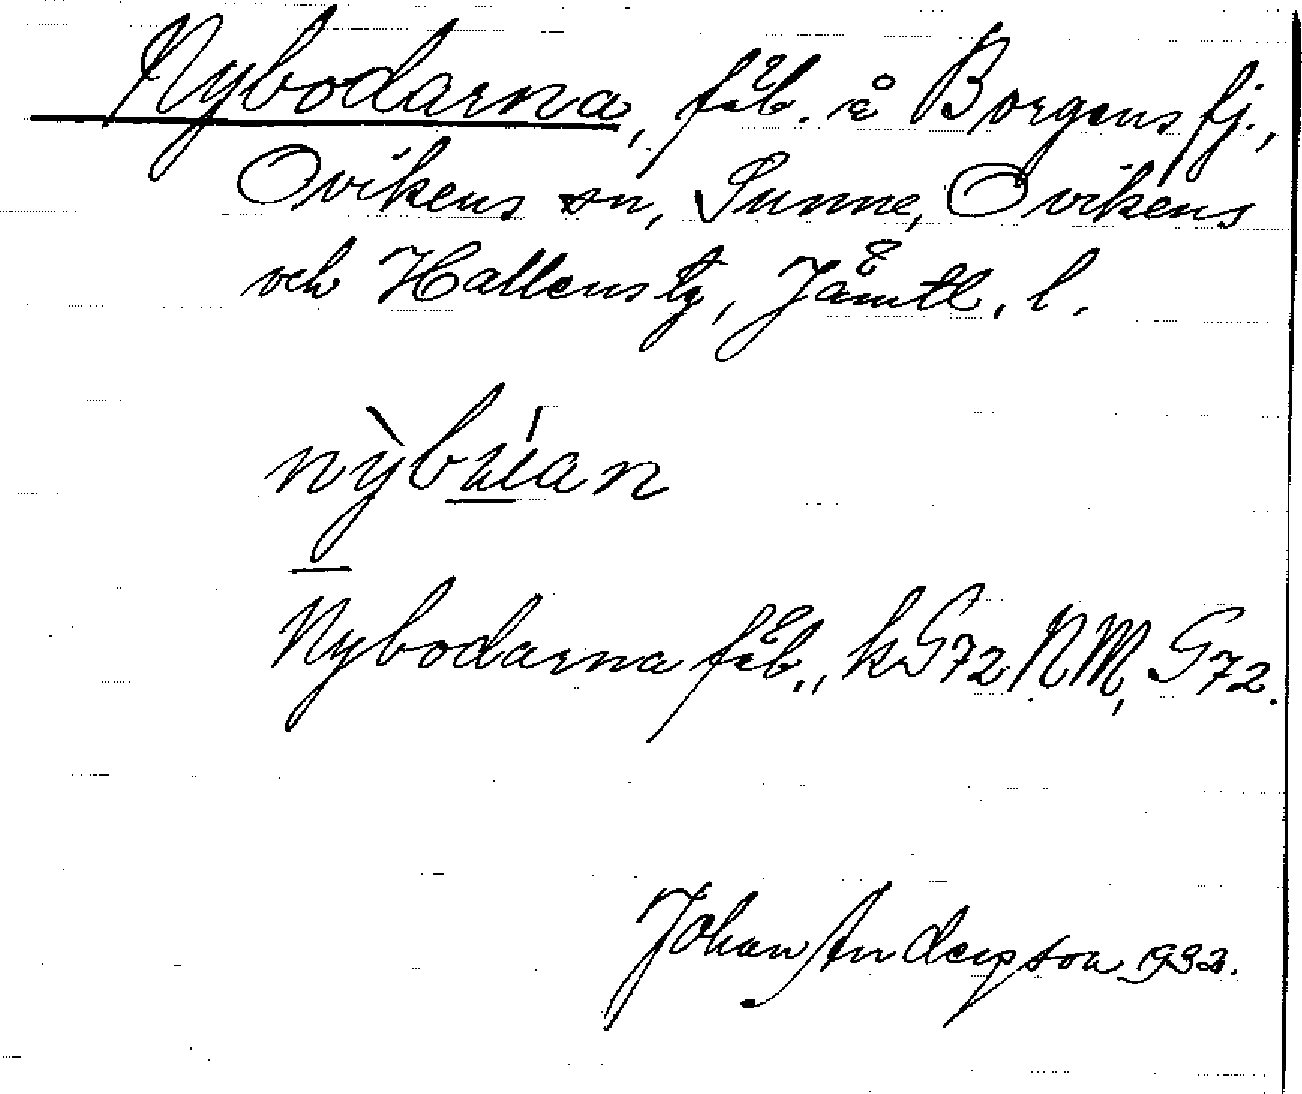 Nybodarna, fäb. å Borgens fj.,
Ovikens sn, Sunne, Ovikens
och Hallens tg, Jämtl. l.
nỳbúan
Nybodarna fäb., kG72NM, G72.
Johan Anderson 1932.